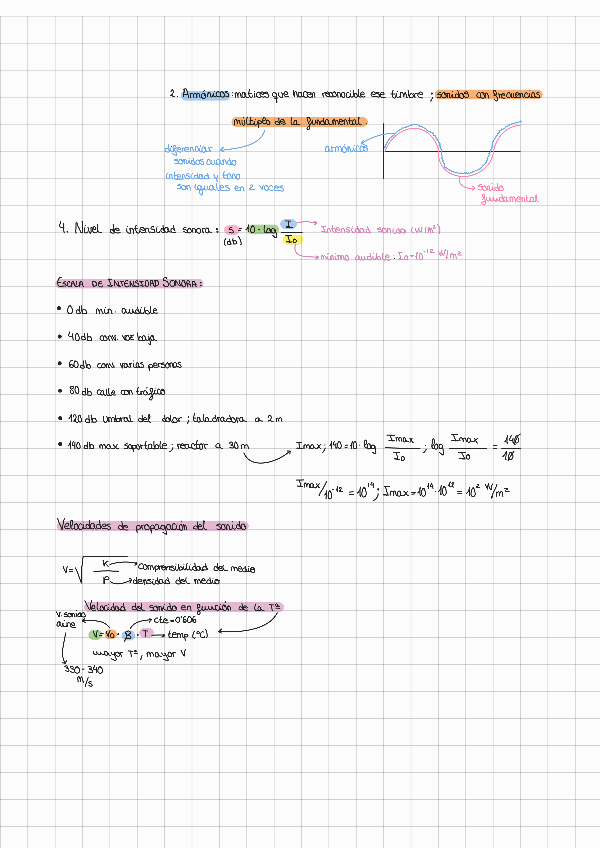 2. Armónicos: matices que hacen reconocible ese timbre ; sonidos con frecuencias
múltiplo de la fundamental.
diferenciar
sonidos cuando
intensidad y tono
son iguales en 2 voces
armónicos
sonido
fundamental
4. Nivel de intensidad sonora : S = 10 · log I / I₀
(db)
Intensidad sonido (W/m²)
mínimo audible : I₀ = 10⁻¹² W/m²
ESCALA DE INTENSIDAD SONORA :
• 0 db min. audible
• 40 db conv. voz baja
• 60 db conv. varias personas
• 80 db calle con tráfico
• 120 db umbral del dolor ; taladradora a 2m
• 140 db max soportable ; reactor a 30m
Imax ; 140 = 10 · log Imax / I₀ ; log Imax / I₀ = 140 / 10
Imax/10⁻¹² = 10¹⁴ ; Imax = 10¹⁴ · 10⁻¹² = 10² W/m²
Velocidades de propagación del sonido
V = √ K / P
comprensibilidad del medio
densidad del medio
Velocidad del sonido en función de la Tª
V. sonido
aire
cte = 0'606
V = V₀ · β · T → temp (ºC)
mayor Tª, mayor V
330 - 340
m/s